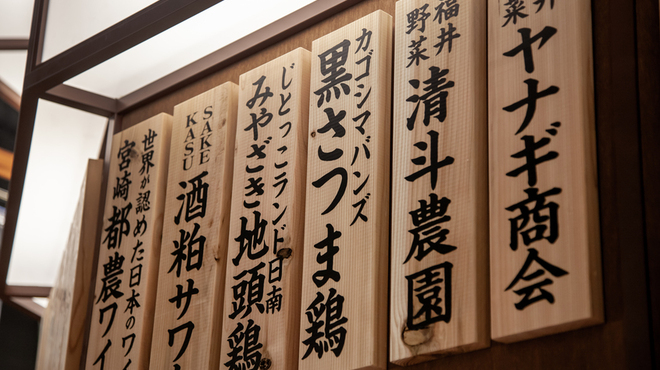 菜井
ヤナギ商会
福井
野菜
清斗農園
カゴシマバンズ
黒さつま鶏
じとっこランド日南
みやざき地頭鶏
SAKE
KASU
酒粕サワ
世界が認めた日本のワイ
宮崎都農ワイ